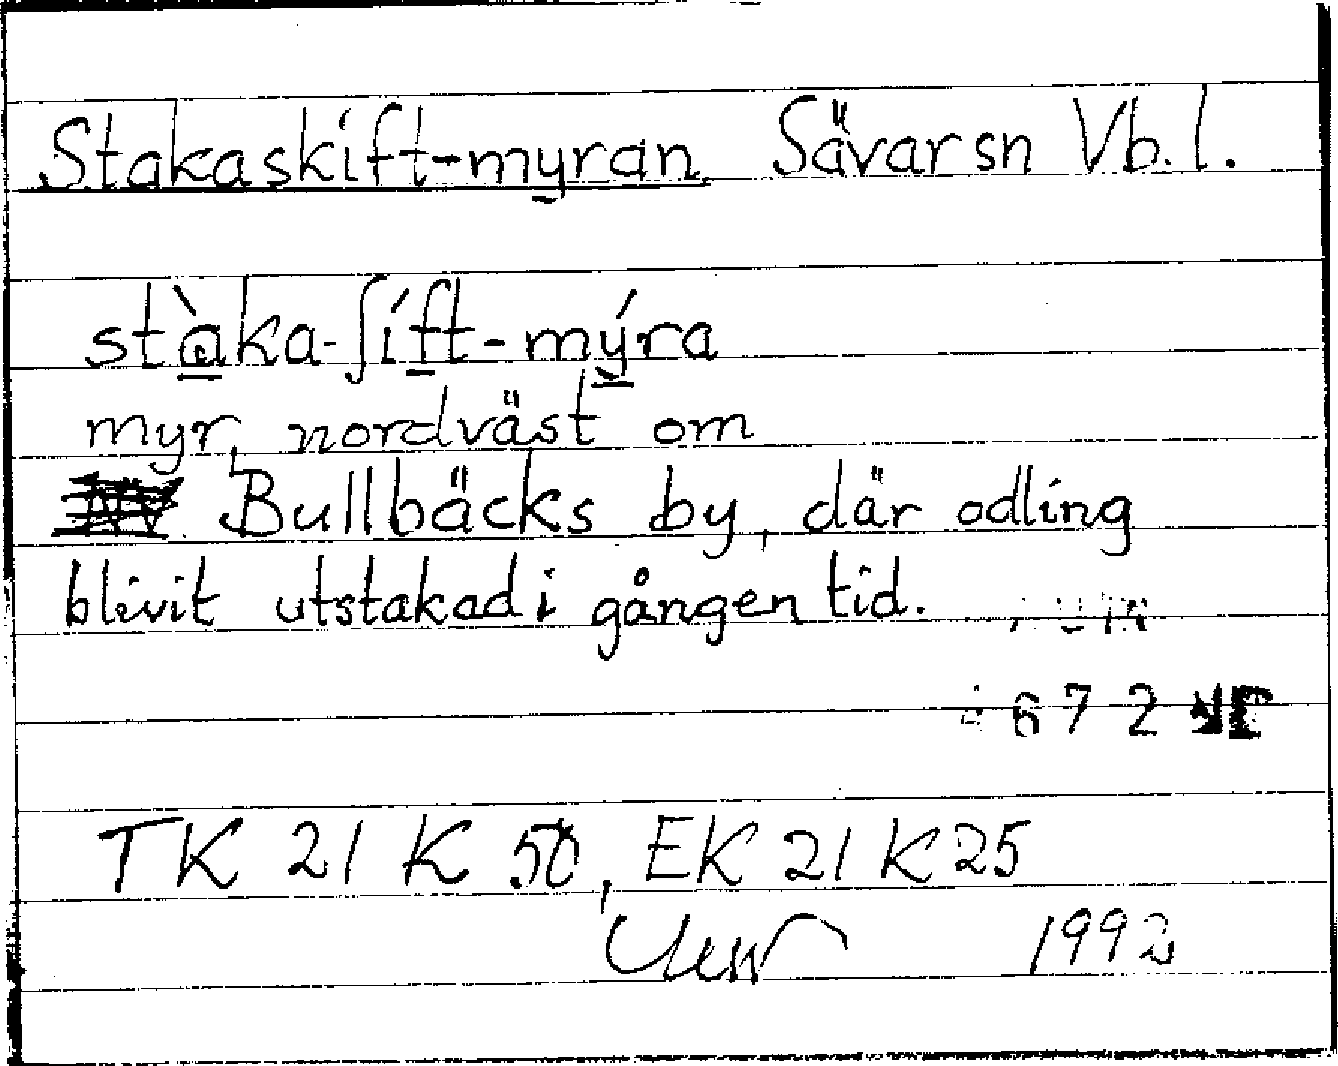 Stakaskift-myran Sävarsn Vb.l.
stàka-ʃift-mýra
myr, nordväst om
Bullbäcks by, där odling
blivit utstakad i gången tid.
672
TK 21 K 50, EK 21 K 25
1992